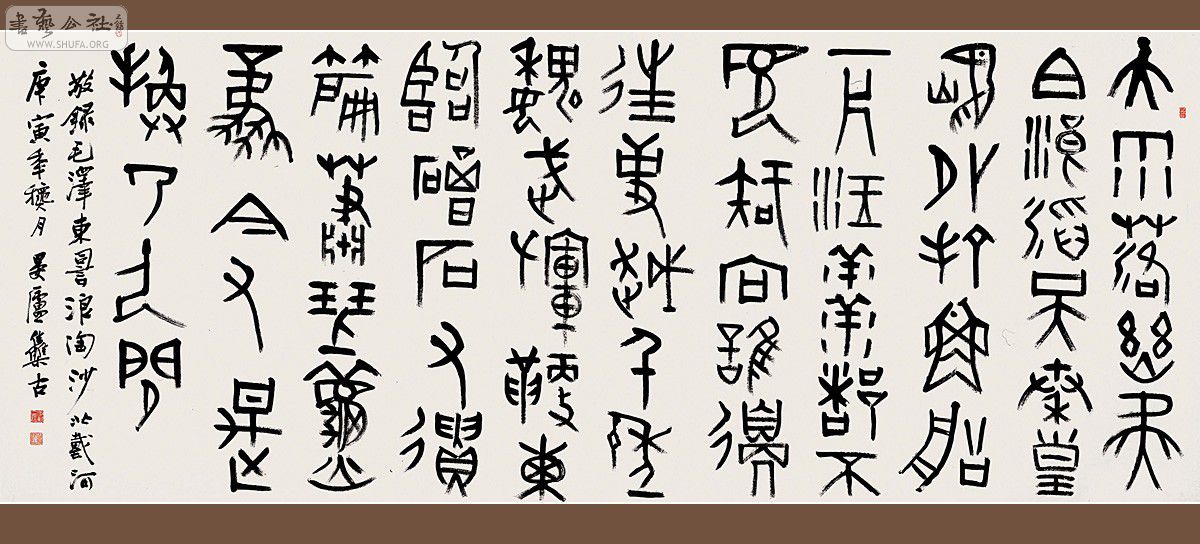 書藝公社
WWW.SHUFA.ORG
大雨落幽燕
白浪滔天秦皇
島外打魚船
一片汪洋都不
見知向誰邊
往事越千年
魏武揮鞭東
臨碣石有遺
篇蕭瑟秋
風今又是
換了人間
敬錄毛澤東詞浪淘沙北戴河
庚寅年穫月晏廬集古